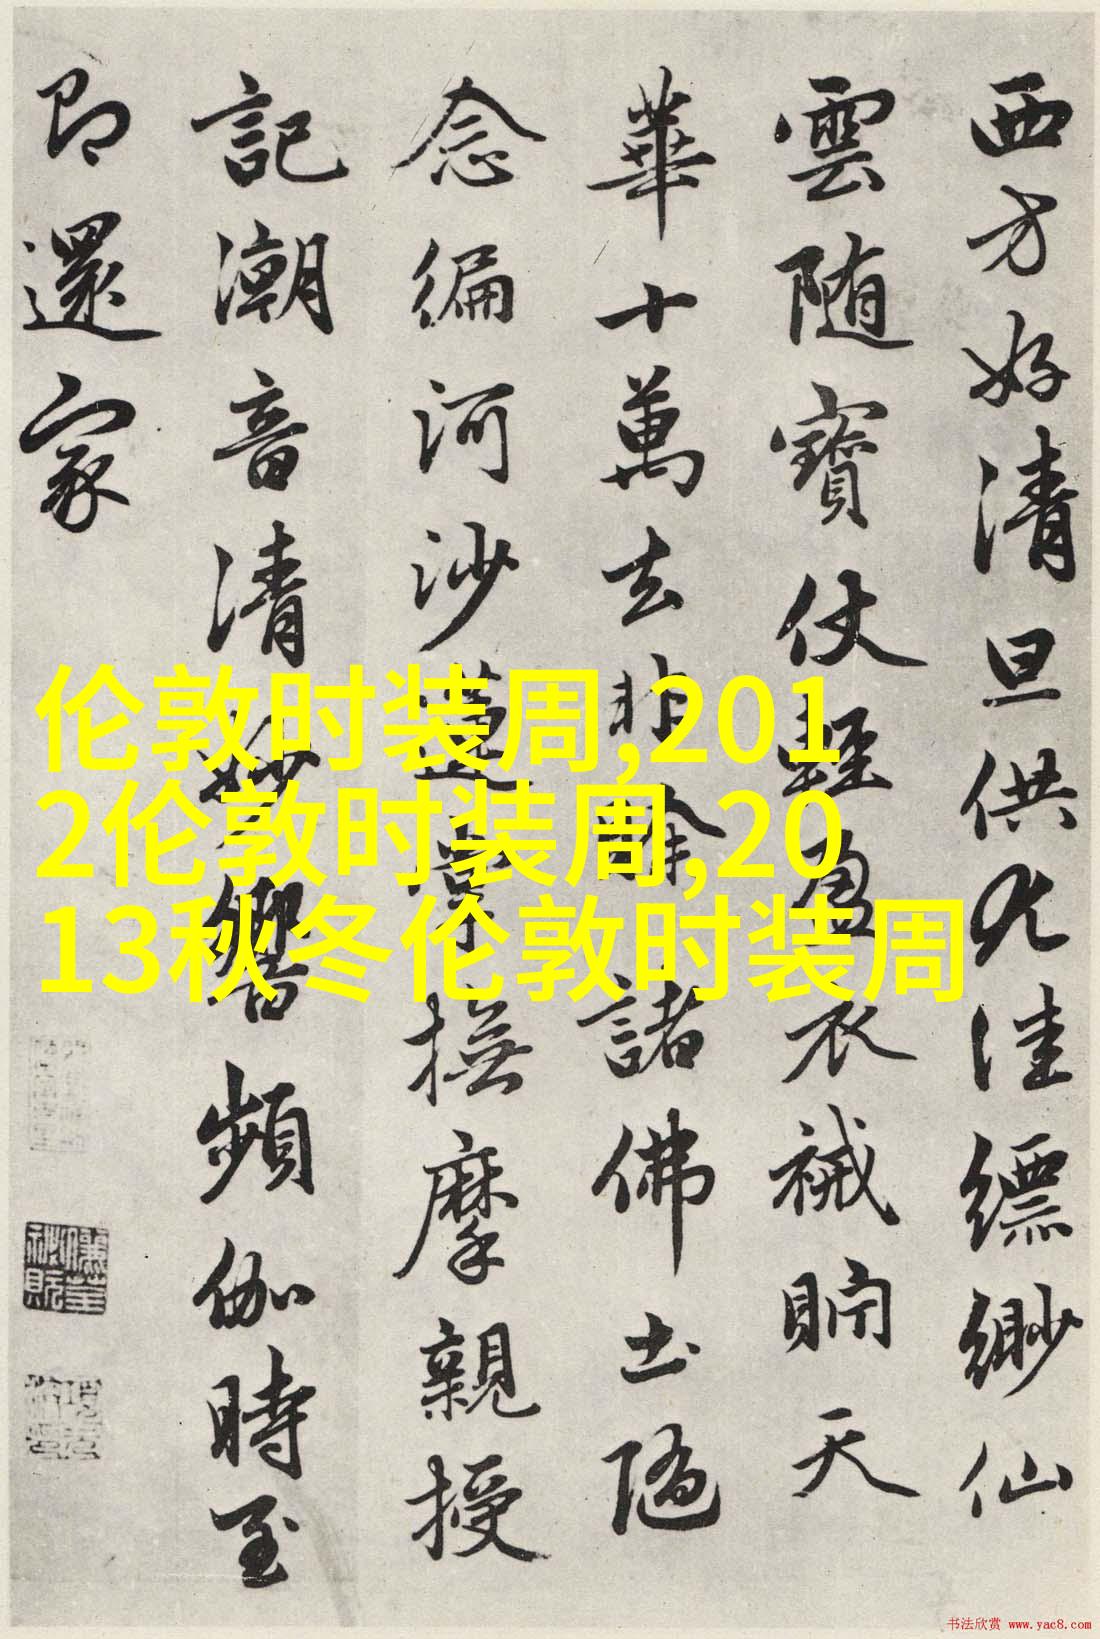 西方好清旦供九洼缥缈仙
雲随寶仗輕盈衣裓貯天
華十萬去非除諸佛土随
念编河沙蓬掌撫摩親授
記潮音清妙響頻伽時至
即還家
伦敦时装周,201
2伦敦时装周,20
13秋冬伦敦时装周
书法欣赏 www.yac8.com